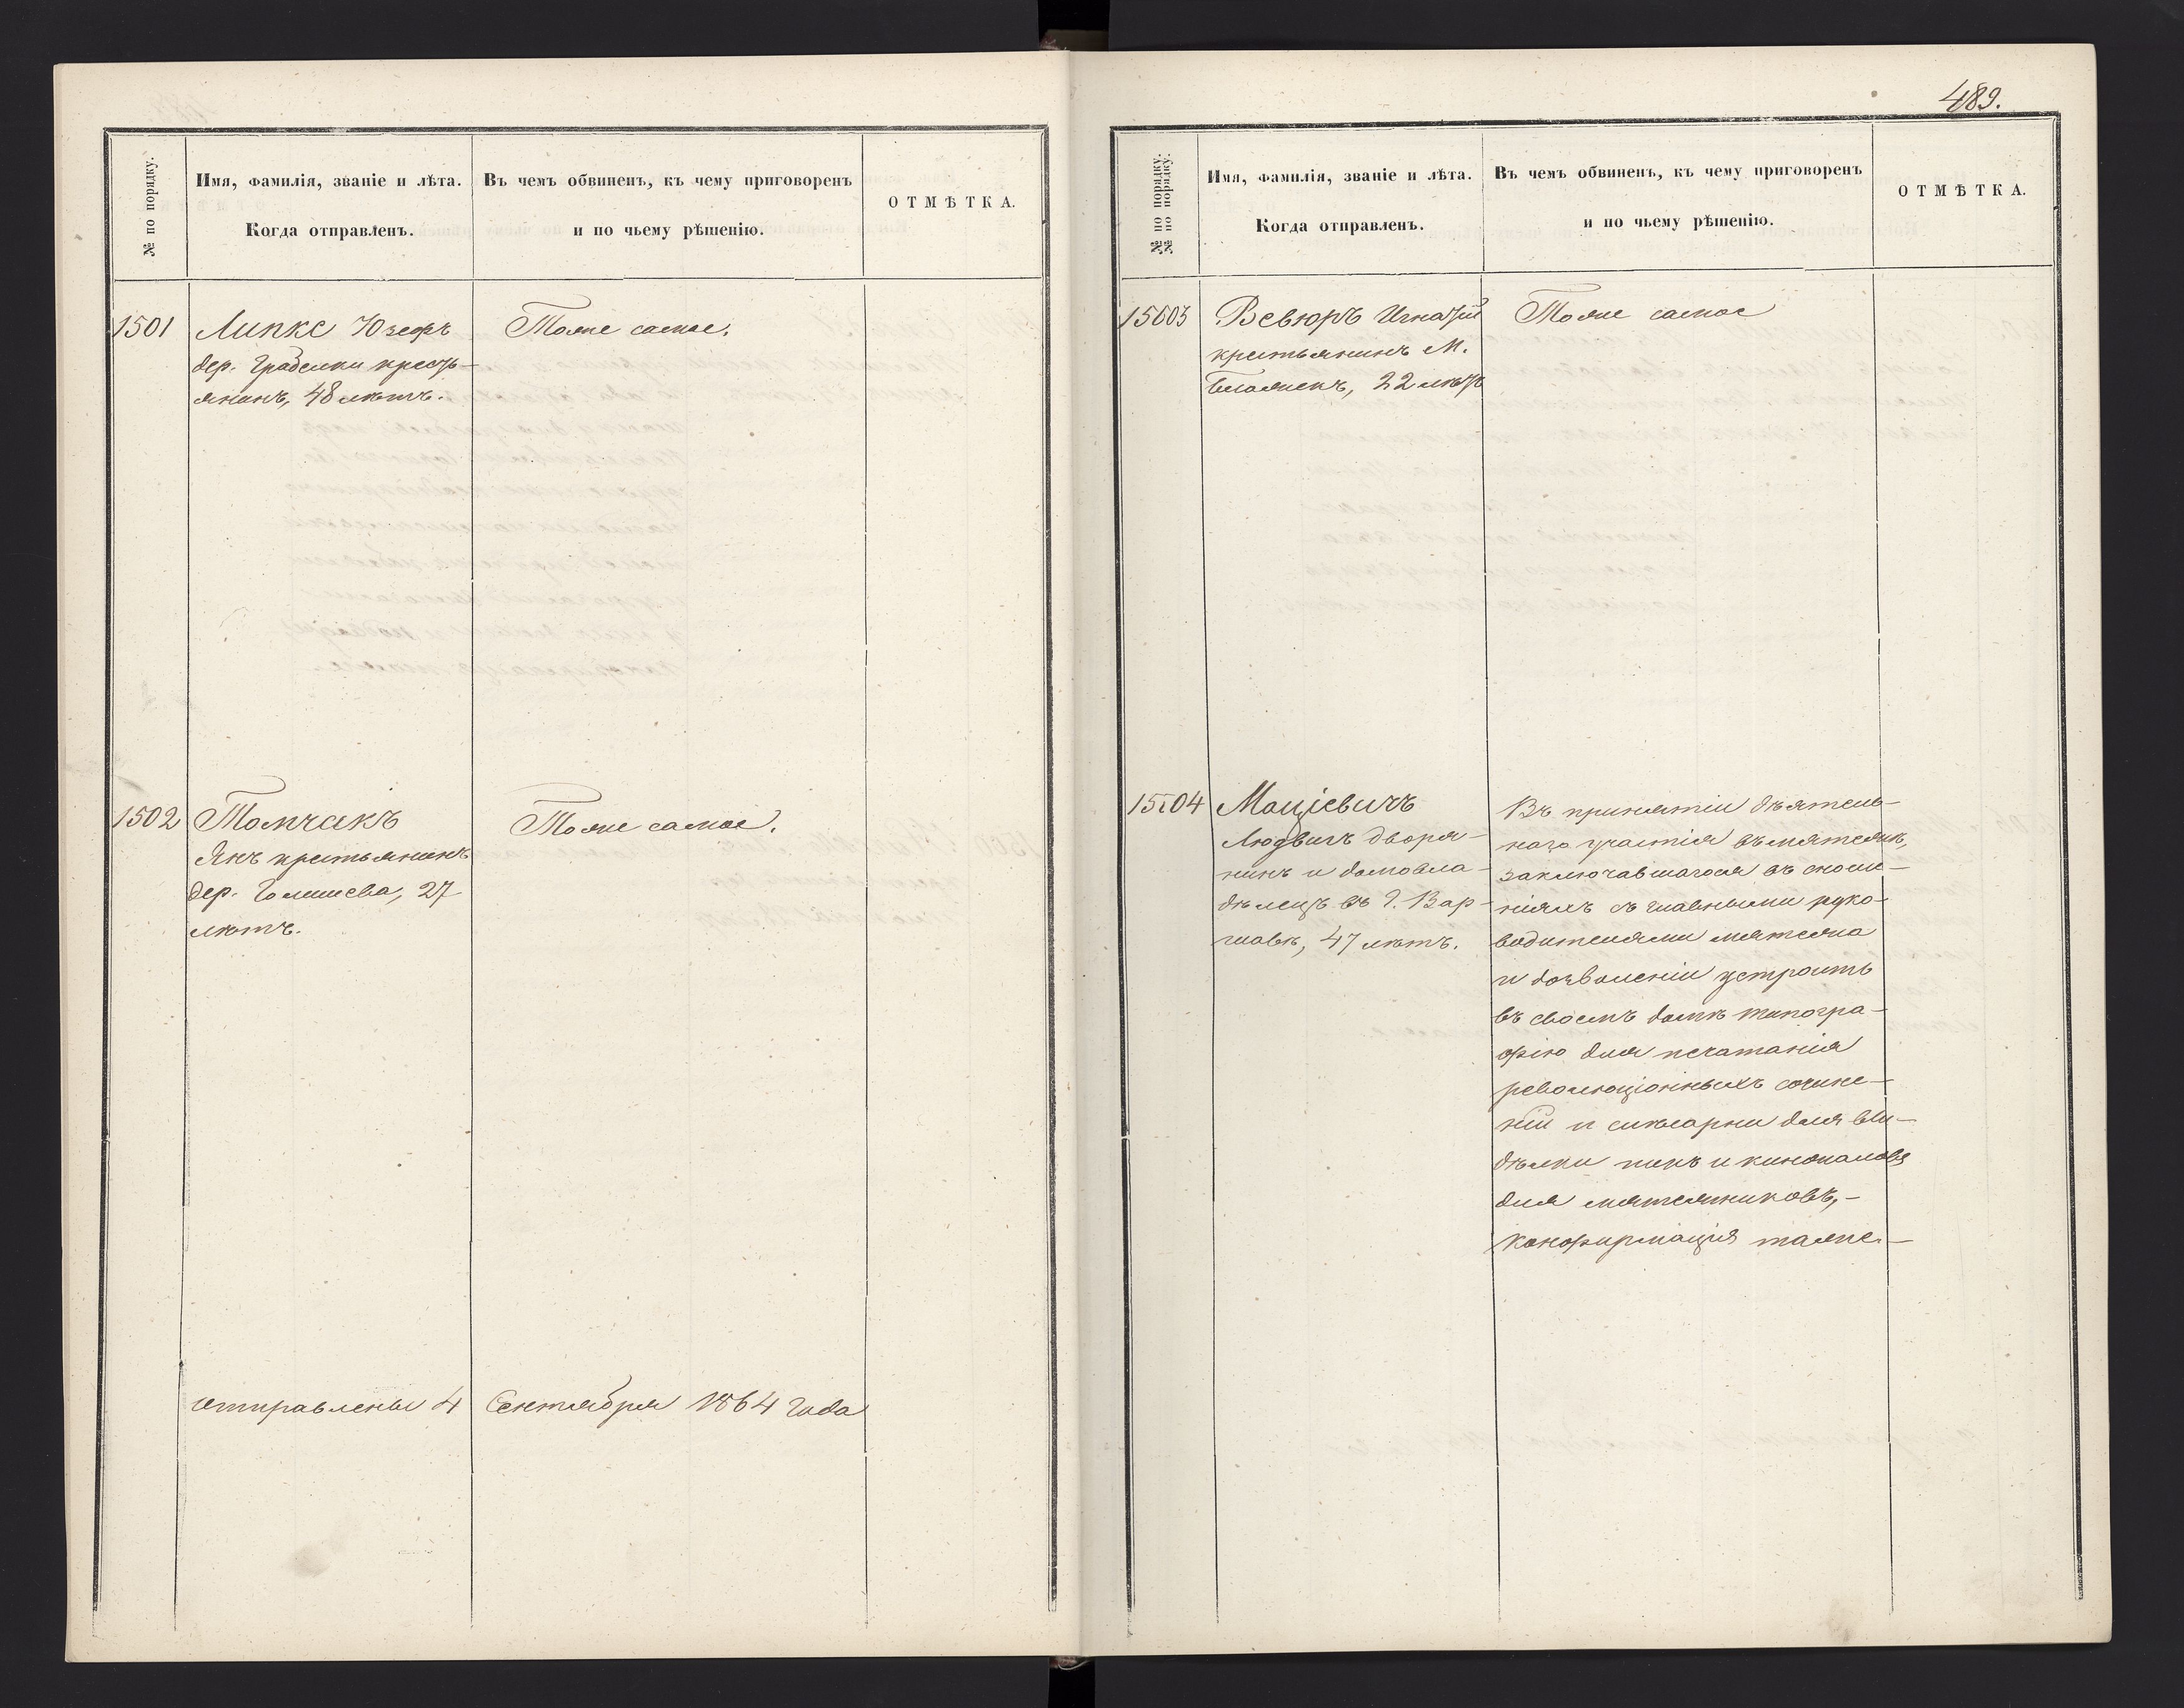 № по порядку.
Имя, фамилія, званіе и лѣта.
Когда отправленъ.
Въ чемъ обвиненъ, къ чему приговоренъ
и по чьему рѣшенію.
ОТМѢТКА.
1501
Липке Юзефъ
дер. Грабелки кресть-
янинъ, 48 лѣтъ.
Тоже самое.
1502
Томчакъ
Янъ крестьянинъ
дер. 27
лѣтъ.
Тоже самое.
отправлены 4 Сентября 1864 года
489.
№ по порядку.
Имя, фамилія, званіе и лѣта.
Когда отправленъ.
Въ чемъ обвиненъ, къ чему приговоренъ
и по чьему рѣшенію.
ОТМѢТКА.
1503
Вевюръ Игнатій
крестьянинъ М.
22 лѣтъ
Тоже самое
1504
Маціевичъ
Людвигъ дворя-
нинъ и домовла-
дѣлецъ въ г. Вар-
шавѣ, 47 лѣтъ.
Въ принятіи дѣятель-
наго участія въ мятежѣ,
заключавшагося въ сноше-
ніяхъ съ главными руко-
водителями мятежа
и дозволеніи устроить
въ своемъ домѣ типогра-
фію для печатанія
революціонныхъ сочине-
ній и слѣсарни для вы-
дѣлки пикъ и кинжаловъ
для мятежниковъ,-
конфирмація таже.-